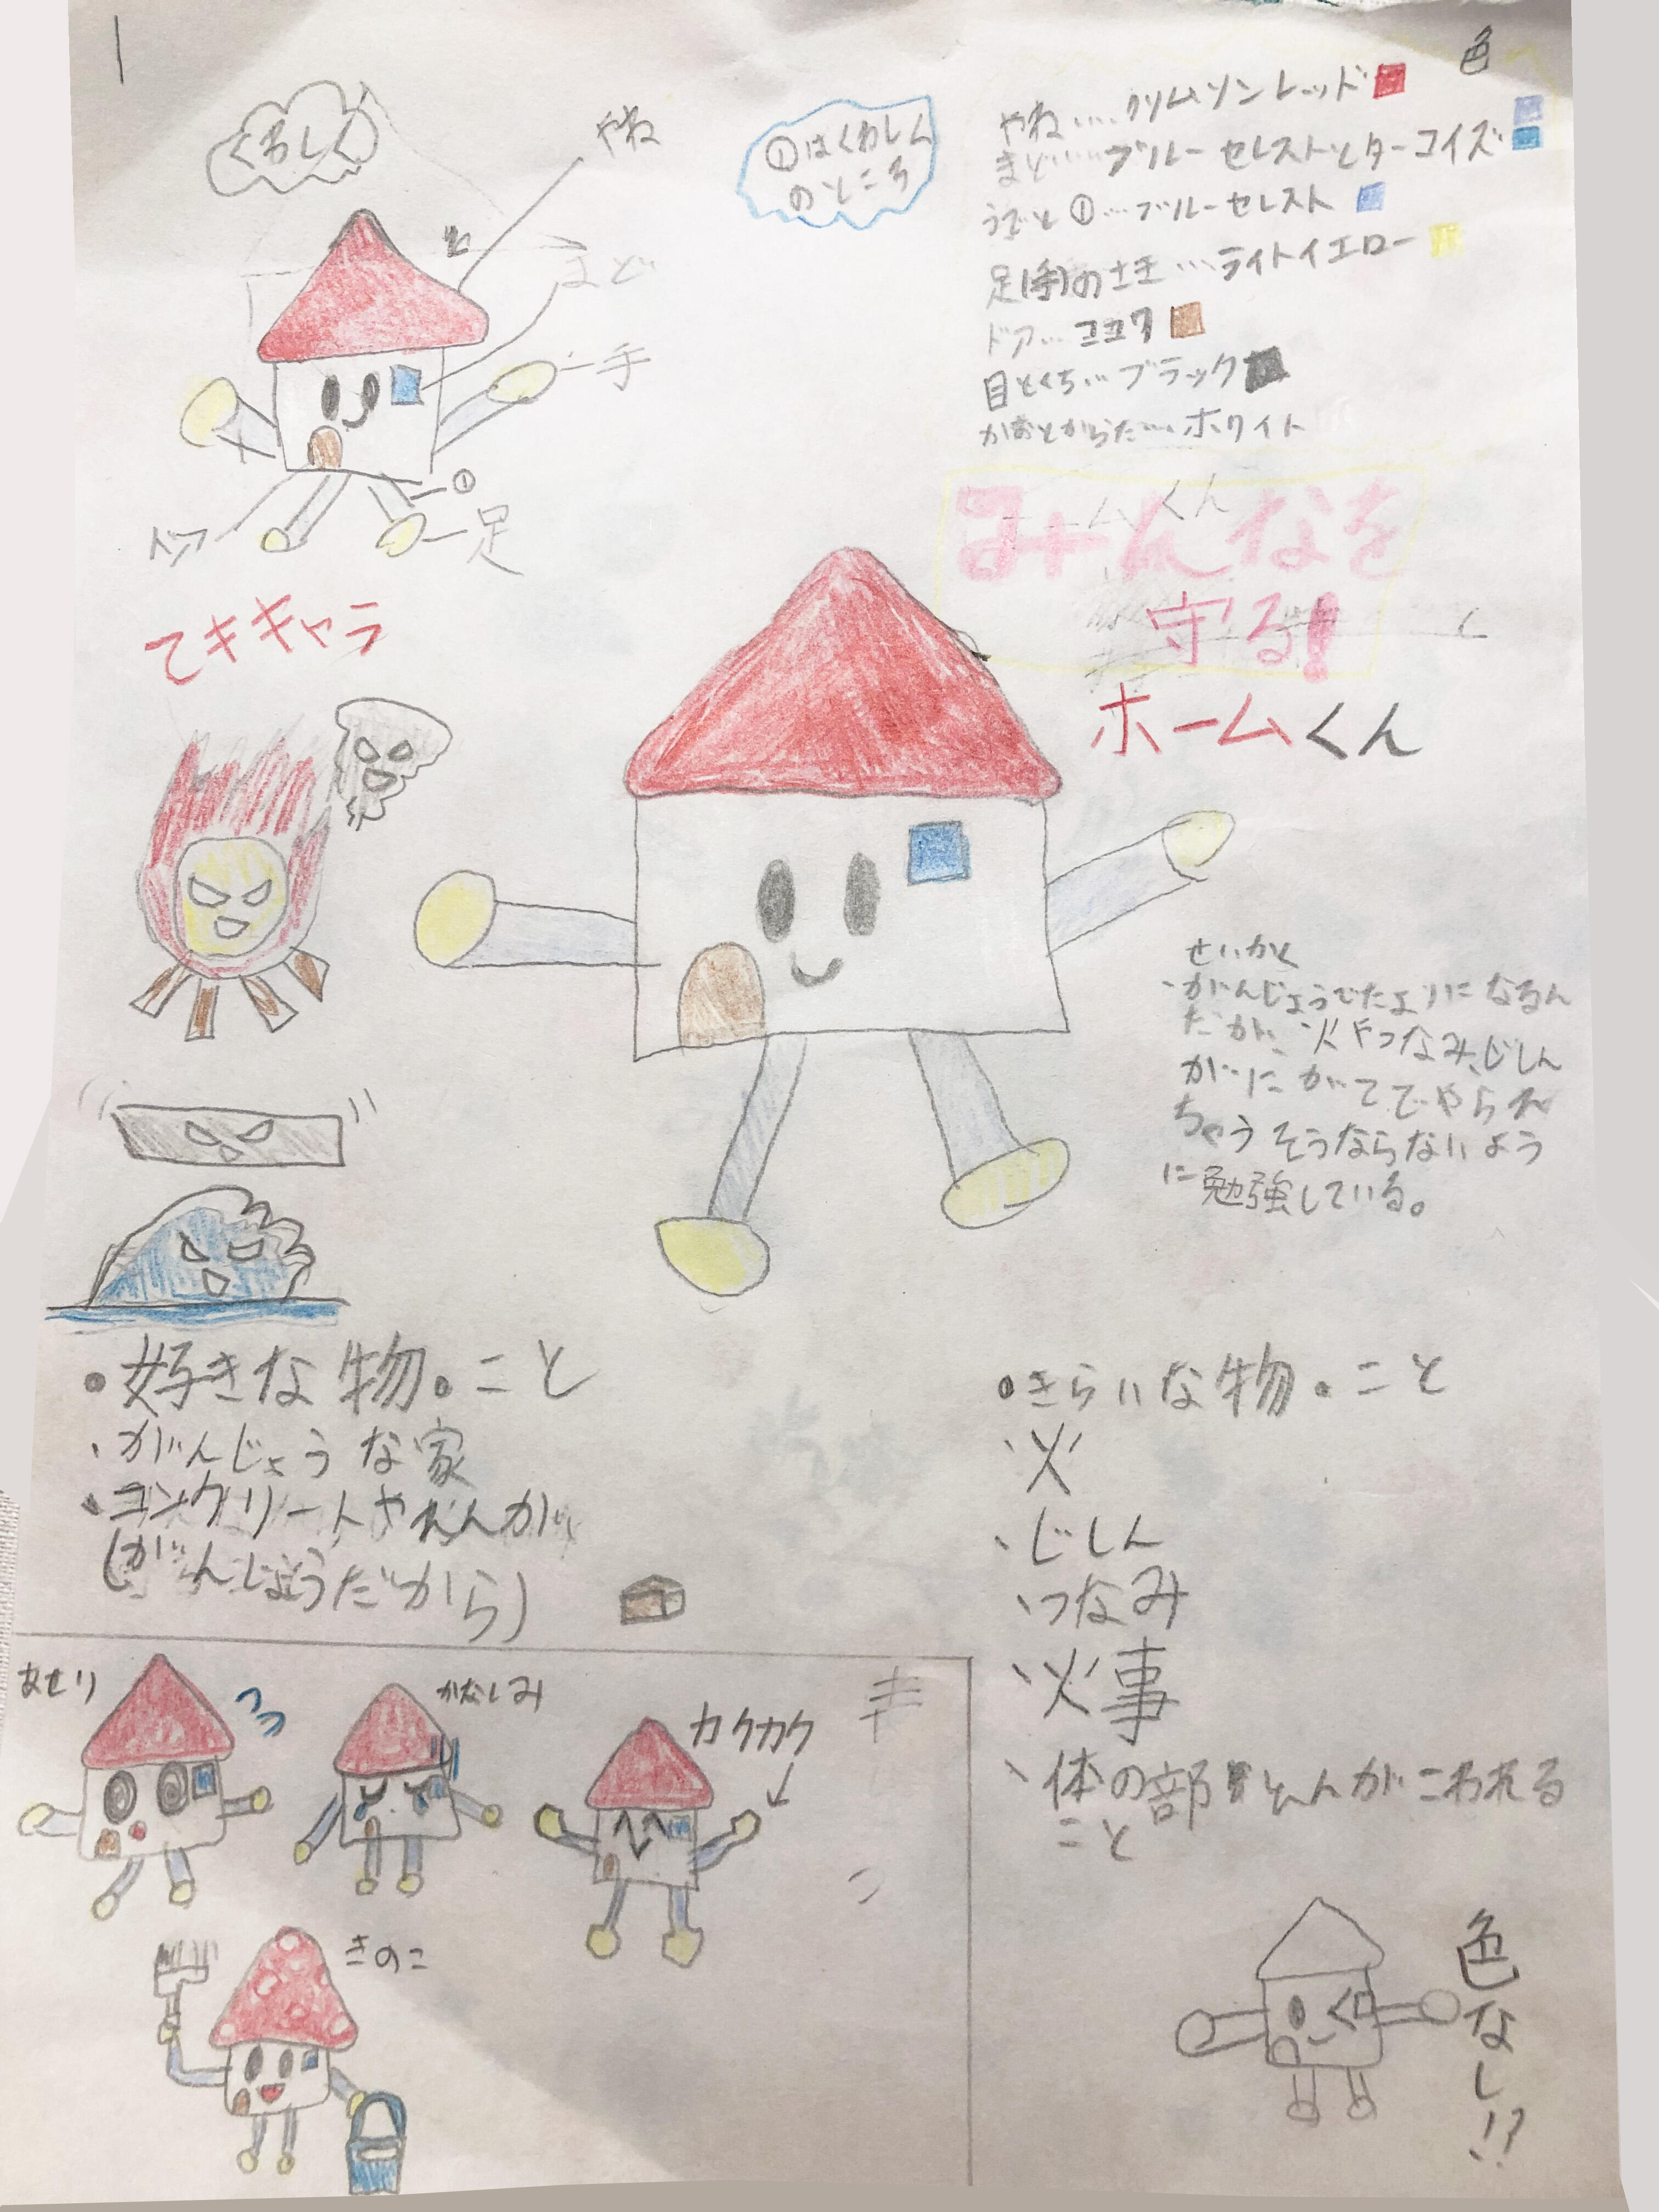 くわしく
やね
まど
手
①
足
ドア
①はくわしく
のところ
色
やね…クリムソンレッド
まど…ブルーセレストとターコイズ
うでと①…ブルーセレスト
足(手)の先…ライトイエロー
ドア…ココア
目とくち…ブラック
かおとからだ…ホワイト
みんなを
守る!
ホームくん
てきキャラ
せいかく
・がんじょうでたよりになるん
だが、火やつなみ、じしん
がにがてでやられ
ちゃうそうならないよう
に勉強している。
●好きな物。こと
・がんじょうな家
・コンクリートやれんが
(がんじょうだから)
●きらいな物。こと
・火
・じしん
・つなみ
・火事
・体の部 がこわれる
こと
あせり
かなしみ
カクカク
きのこ
色なし!?